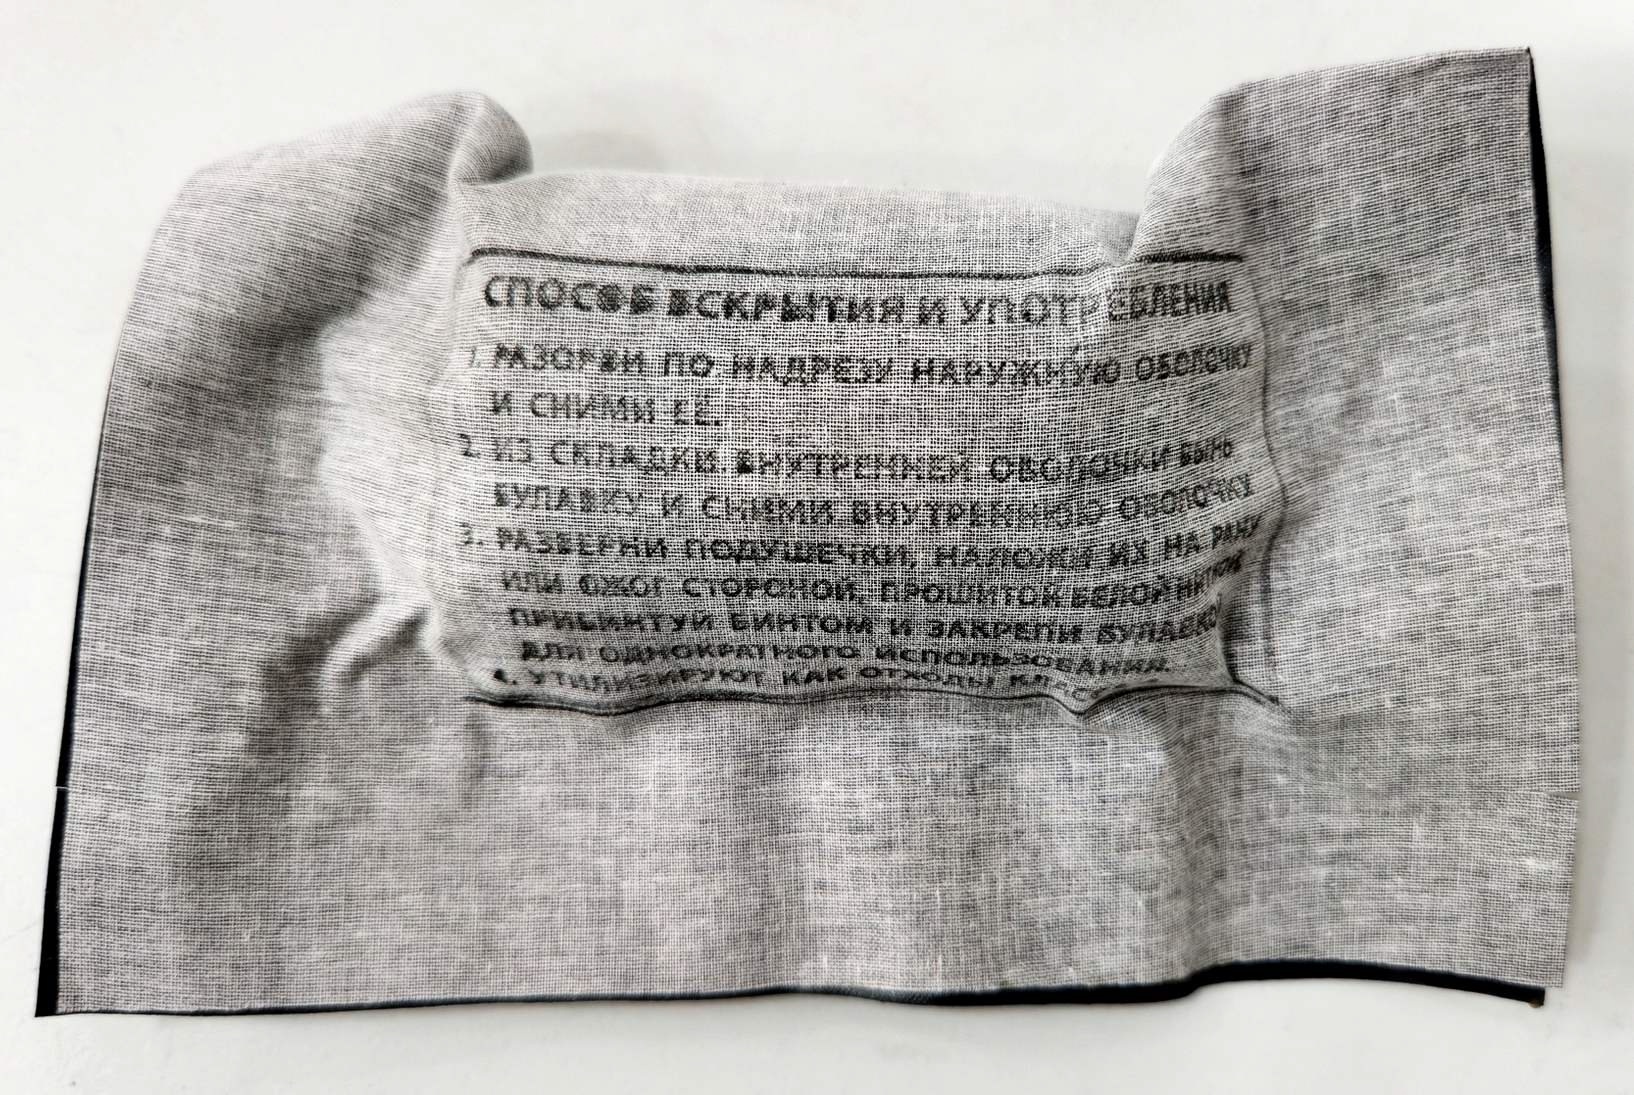 СПОСОБ ВСКРЫТИЯ И УПОТРЕБЛЕНИЯ
1. РАЗОРВИ ПО НАДРЕЗУ НАРУЖНУЮ ОБОЛОЧКУ
И СНИМИ ЕЁ.
2. ИЗ СКЛАДКИ ВНУТРЕННЕЙ ОБОЛОЧКИ ВЫНЬ
БУЛАВКУ И СНИМИ ВНУТРЕННЮЮ ОБОЛОЧКУ
3. РАЗВЕРНИ ПОДУШЕЧКИ, НАЛОЖИ ИХ НА РАНУ
ИЛИ ОЖОГ СТОРОНОЙ, ПРОШИТОЙ БЕЛОЙ НИТКОЙ
ПРИБИНТУЙ БИНТОМ И ЗАКРЕПИ БУЛАВКОЙ
ДЛЯ ОДНОКРАТНОГО ИСПОЛЬЗОВАНИЯ.
4. УТИЛИЗИРУЮТ КАК ОТХОДЫ